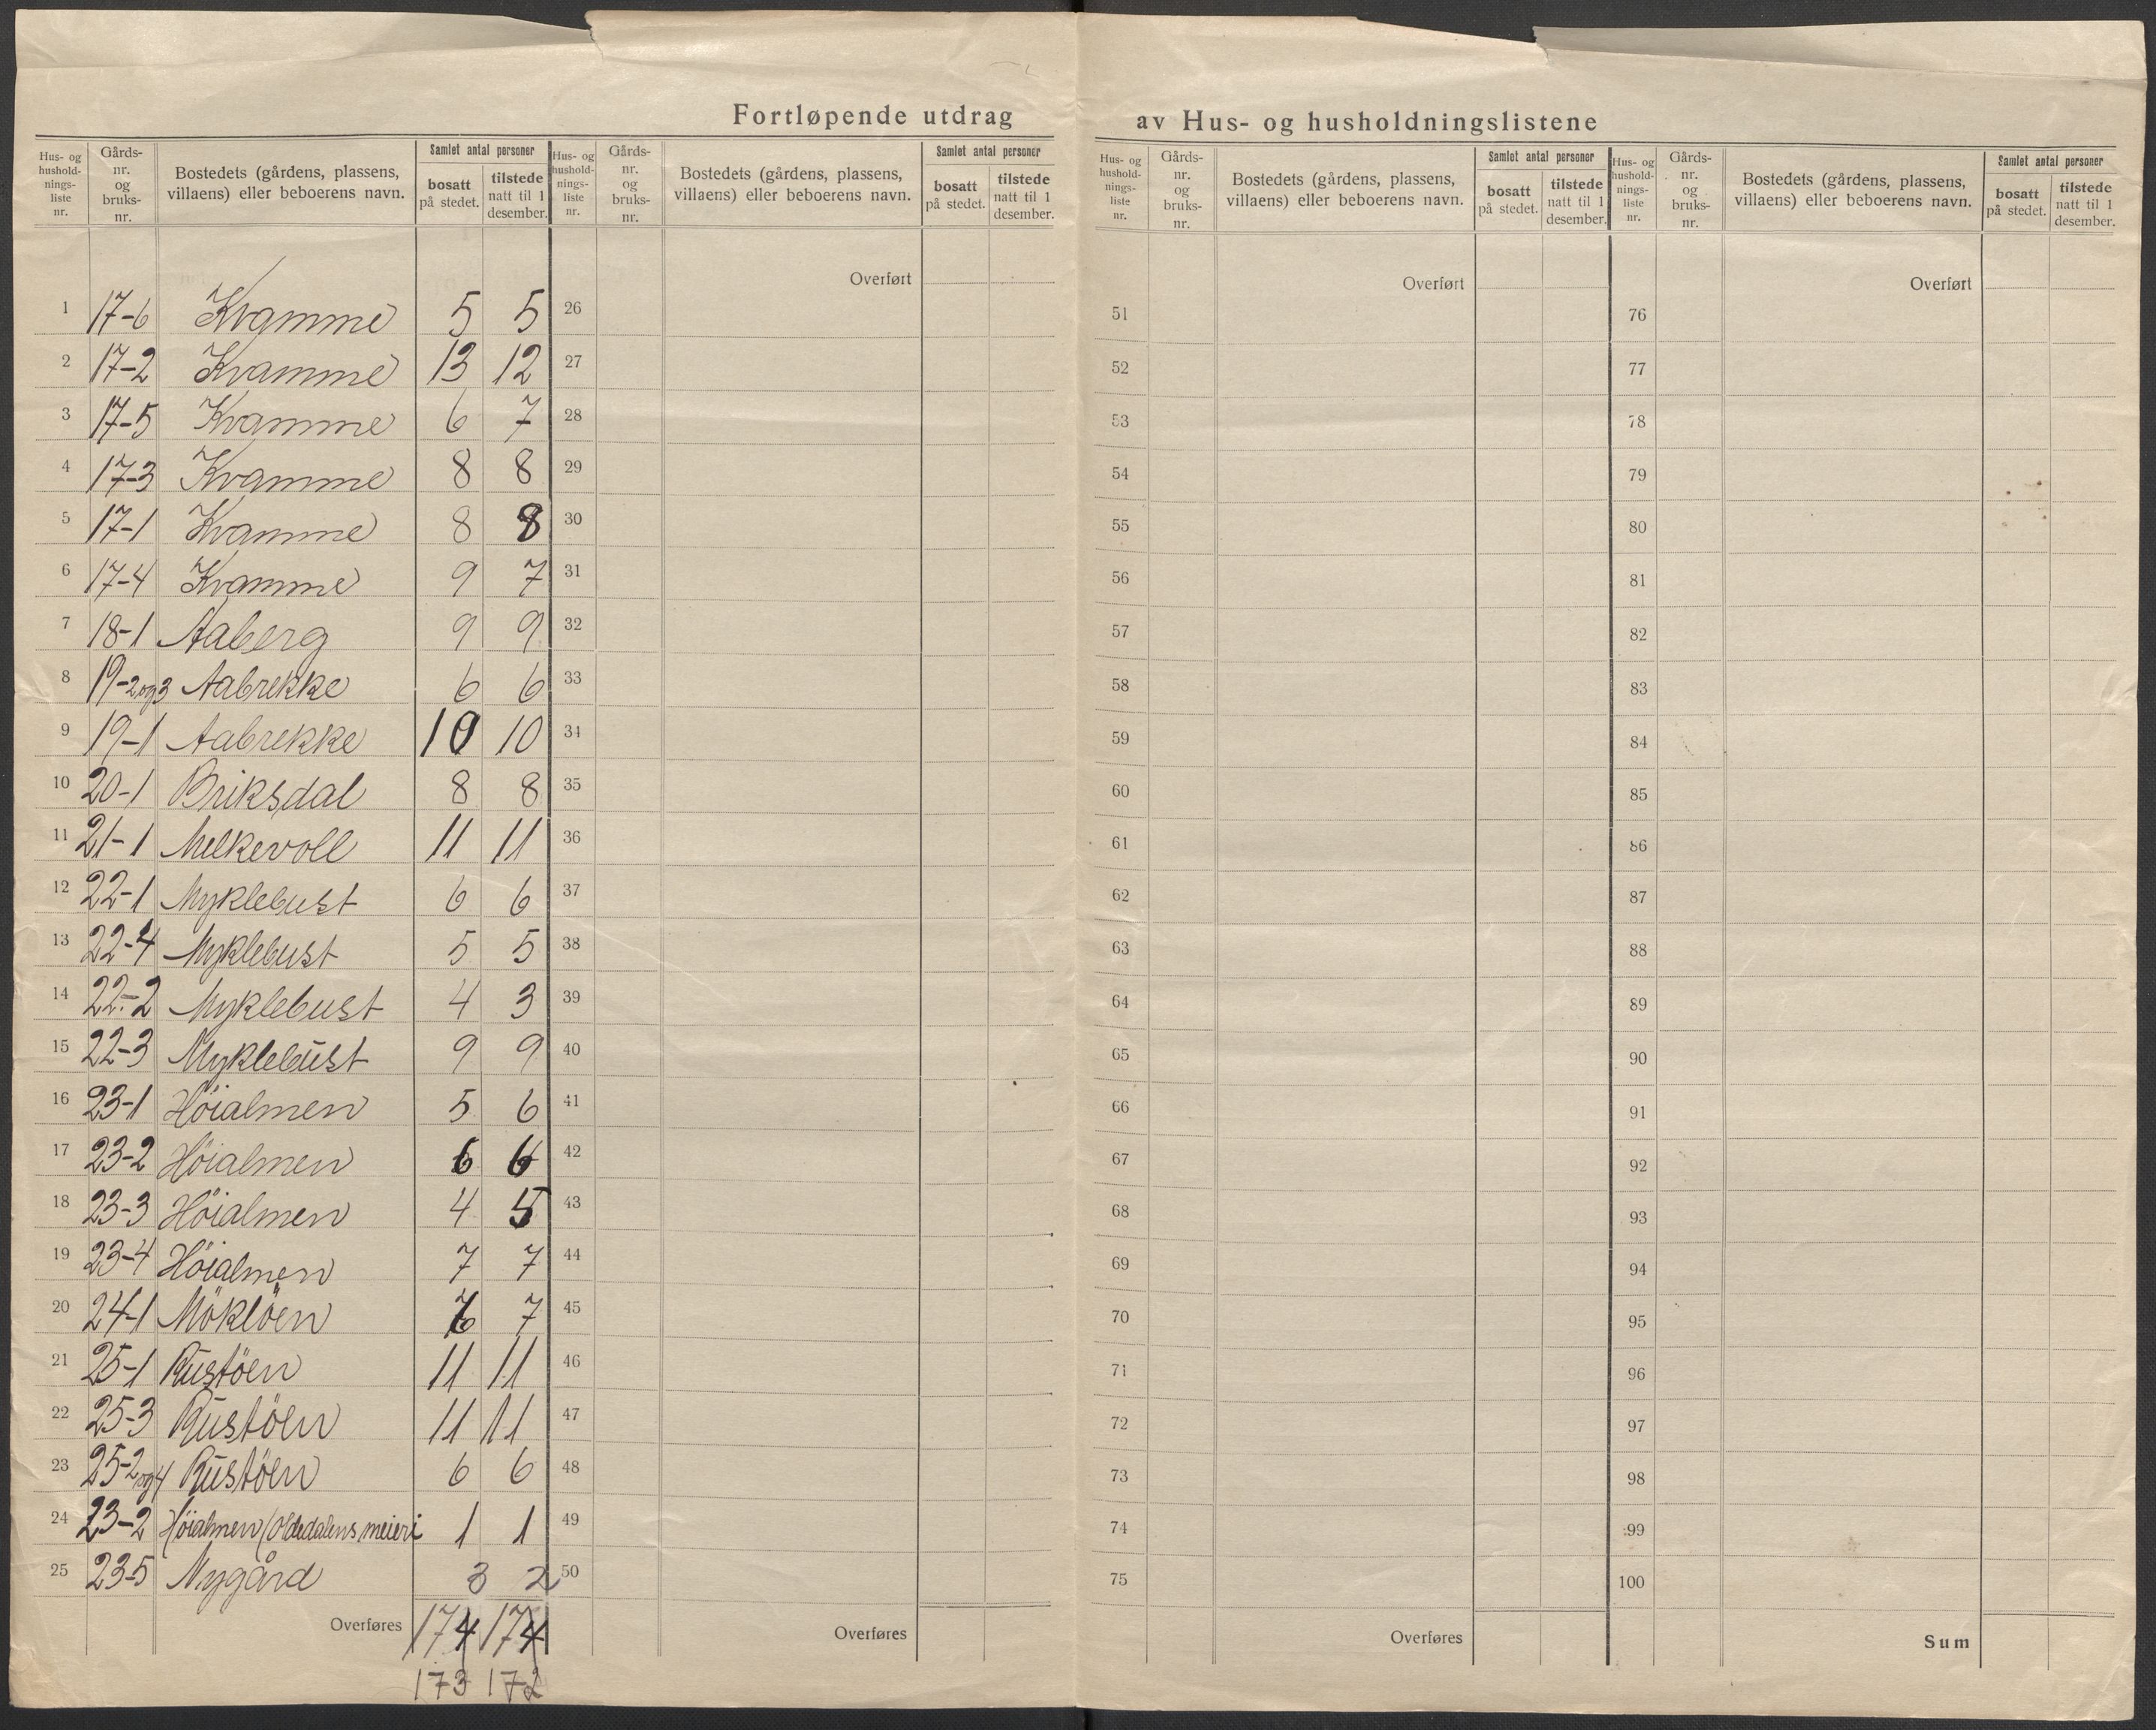 Fortløpende utdrag av Hus- og husholdningslistene
Hus- og hushold-nings-liste nr. Gårds-nr. og bruks-nr. Bostedets (gårdens, plassens, villaens) eller beboerens navn. Samlet antal personer bosatt på stedet. tilstede natt til 1 desember.
1 17-6 Kvamme 5 5
2 17-2 Kvamme 13 12
3 17-5 Kvamme 6 7
4 17-3 Kvamme 8 8
5 17-1 Kvamme 8 8
6 17-4 Kvamme 9 7
7 18-1 Aaberg 9 9
8 19-2og3 Aabrekke 6 6
9 19-1 Aabrekke 10 10
10 20-1 Briksdal 8 8
11 21-1 Melkevoll 11 11
12 22-1 Myklebust 6 6
13 22-4 Myklebust 5 5
14 22-2 Myklebust 4 3
15 22-3 Myklebust 9 9
16 23-1 Höialmen 5 6
17 23-2 Höialmen 6 6
18 23-3 Höialmen 4 5
19 23-4 Höialmen 7 7
20 24-1 Möklöen 7
21 25-1 Rustöen 11 11
22 25-3 Rustöen 11 11
23 25-2og4 Rustöen 6 6
24 23-2 Höialmen (Oldedalens meieri 1 1
25 23-5 Nygård 3 2
Overføres 174 174
173 172
Hus- og hushold-nings-liste nr. Gårds-nr. og bruks-nr. Bostedets (gårdens, plassens, villaens) eller beboerens navn. Samlet antal personer bosatt på stedet. tilstede natt til 1 desember.
Overført
26
27
28
29
30
31
32
33
34
35
36
37
38
39
40
41
42
43
44
45
46
47
48
49
50
Overføres
Hus- og hushold-nings-liste nr. Gårds-nr. og bruks-nr. Bostedets (gårdens, plassens, villaens) eller beboerens navn. Samlet antal personer bosatt på stedet. tilstede natt til 1 desember.
Overført
51
52
53
54
55
56
57
58
59
60
61
62
63
64
65
66
67
68
69
70
71
72
73
74
75
Overføres
Hus- og hushold-nings-liste nr. Gårds-nr. og bruks-nr. Bostedets (gårdens, plassens, villaens) eller beboerens navn. Samlet antal personer bosatt på stedet. tilstede natt til 1 desember.
Overført
76
77
78
79
80
81
82
83
84
85
86
87
88
89
90
91
92
93
94
95
96
97
98
99
100
Sum